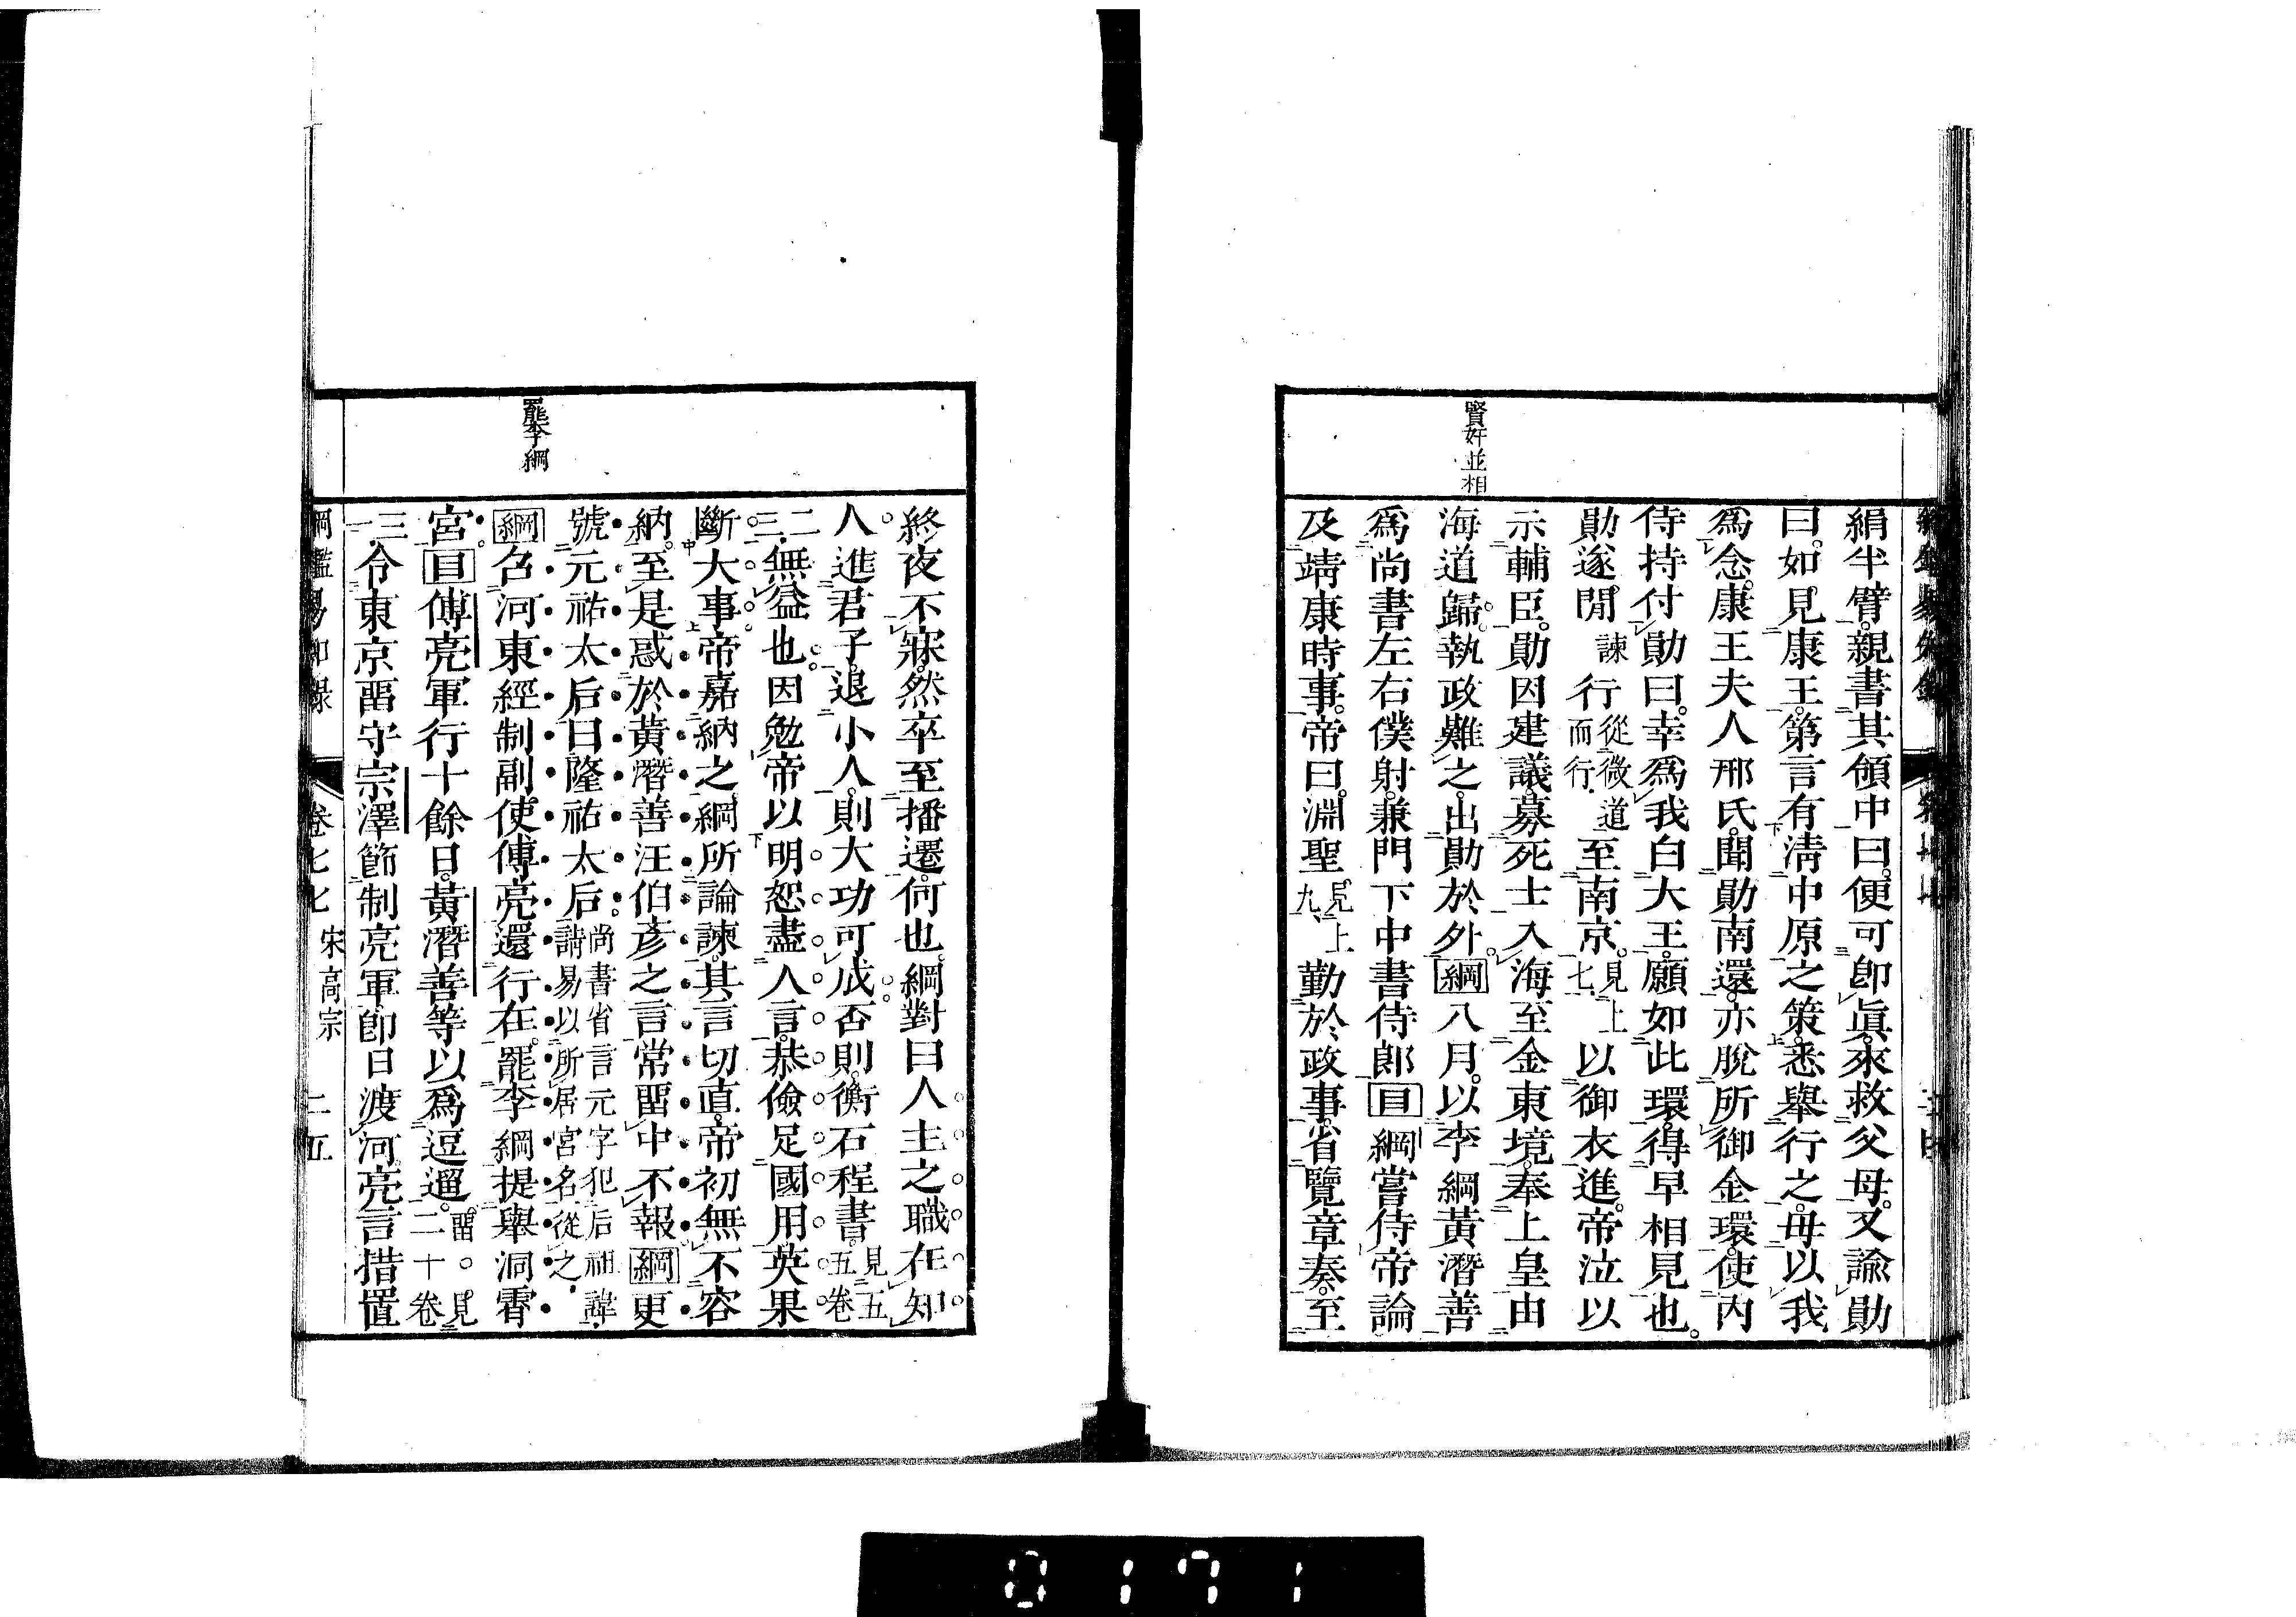 賢奸並相
絹半臂。親書其領中曰。便可卽眞。來救父母。又諭勛
曰。如見康王。第言有淸中原之策。悉舉行之。毋以我
爲念。康王夫人邢氏。聞勛南還。亦脫所御金環。使內
侍持付勛曰。幸爲我白大王。願如此環。得早相見也。
勛遂。閒諫行從微道而行。至南京。見上七、以御衣進。帝泣以
示輔臣。勛因建議。募死士入海至金東境。奉上皇由
海道歸。執政難之。出勛於外。綱八月。以李綱黃潛善
爲尚書左右僕射。兼門下中書侍郎。目綱嘗侍帝論
及靖康時事。帝曰。淵聖。見上九、勤於政事。省覽章奏。至
罷李綱
終夜不寐。然卒至播遷。何也。綱對曰。人主之職在知
人。進君子。退小人。則大功可成。否則。衡石程書。見五五卷
無益也。因勉帝以明恕盡人言。恭儉足國用。英果
斷大事。帝嘉納之。綱所論諫。其言切直。帝初無不容
納。至是惑於黃潛善汪伯彥之言。常畱中不報。綱更
號元祐太后曰隆祐太后。尚書省言元字犯后祖諱。請易以所居宮名。從之。
綱召河東經制副使傅亮還行在。罷李綱提舉洞霄
宮。目傅亮軍行十餘日。黃潛善等以爲逗遛。畱。見二十卷
三。令東京畱守宗澤節制亮軍。卽日渡河。亮言措置
綱鑑易知錄 卷七七 宋高宗 二五
0171